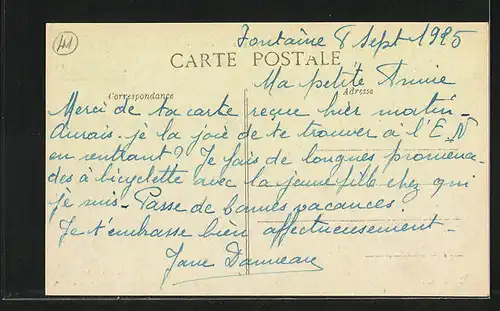 41
Fontaine 8 Sept 1925
CARTE POSTALE
Ma petite Annie
Correspondance
Adresse
Merci de ta carte reçue hier matin-
Aurais-je la joie de te trouver à l'E.N
en rentrant? Je fais de longues promena-
des à bicyclette avec la jeune fille chez qui
je suis- Passe de bonnes vacances.
Je t'embrasse bien affectueusement-